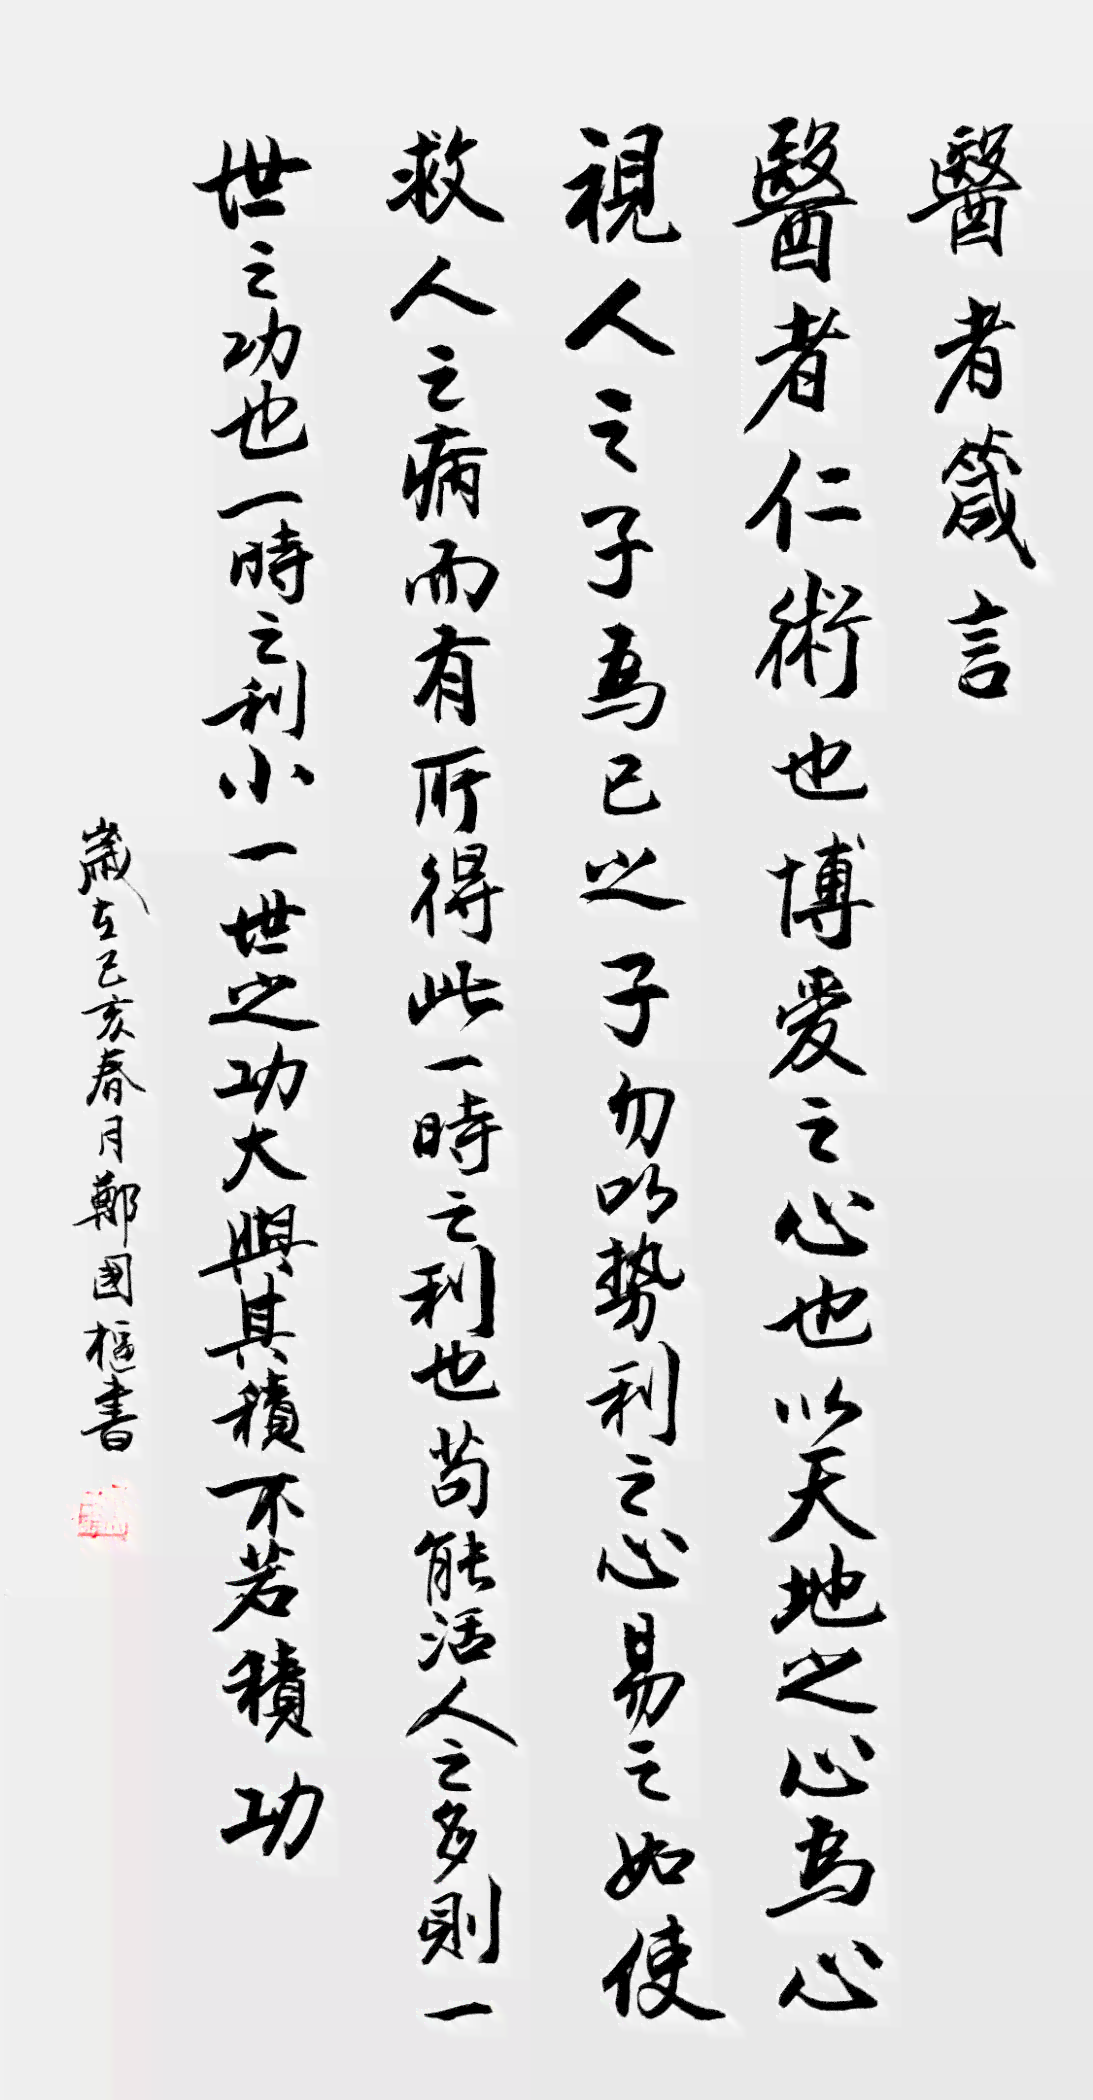 醫者箴言
醫者仁術也博愛之心也以天地之心為心
視人之子為己之子勿以勢利之心易之如使
救人之病而有所得此一時之利也苟能活人之多則一
世之功也一時之利小一世之功大與其積不若積功
歲在己亥春月鄭國樞書